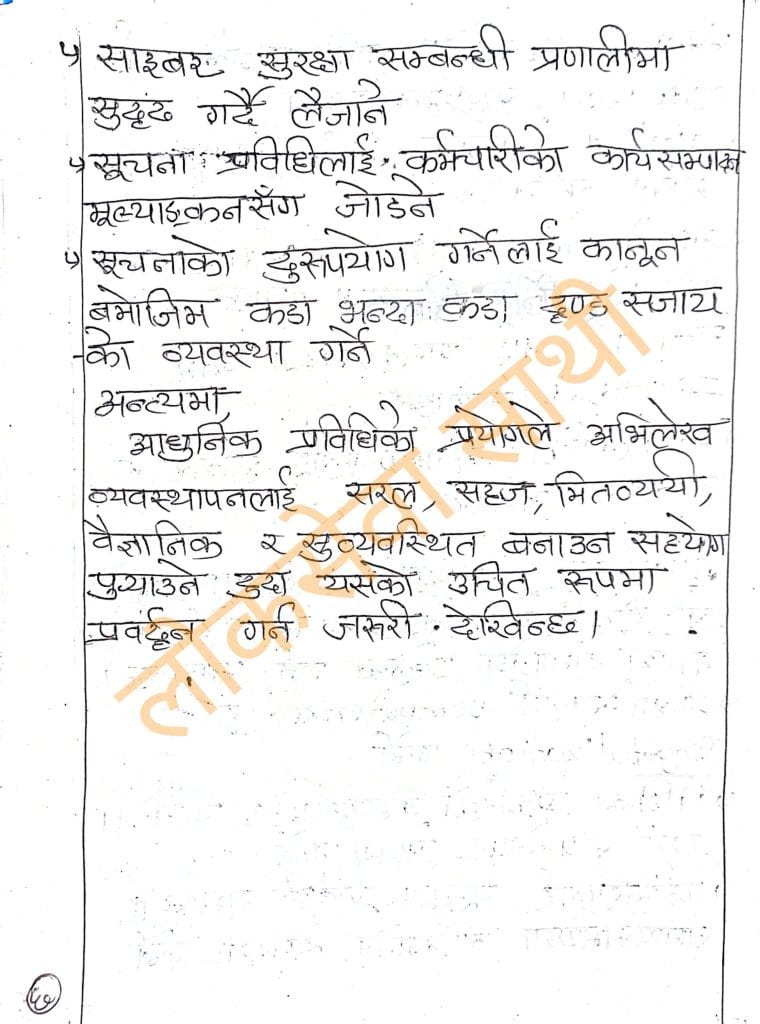 ५ साइबर सुरक्षा सम्बन्धी प्रणालीमा
सुदृढ गर्दै लैजाने
५ सूचना प्रविधिलाई कर्मचारीको कार्यसम्पादन
मूल्याङ्कनसँग जोडने
५ सूचनाको दुरूपयोग गर्नेलाई कानून
बमोजिम कडा भन्दा कडा दण्ड सजाय
-को व्यवस्था गर्ने
अन्त्यमा,
आधुनिक प्रविधिको प्रयोगले अभिलेख
व्यवस्थापनलाई सरल, सहज, मितव्ययी,
वैज्ञानिक र सुव्यवस्थित बनाउन सहयोग
पुर्‍याउने हुदा यसको उचित रूपमा
प्रवर्द्धन गर्न जरुरी देखिन्छ।
लोकसेवा साथी